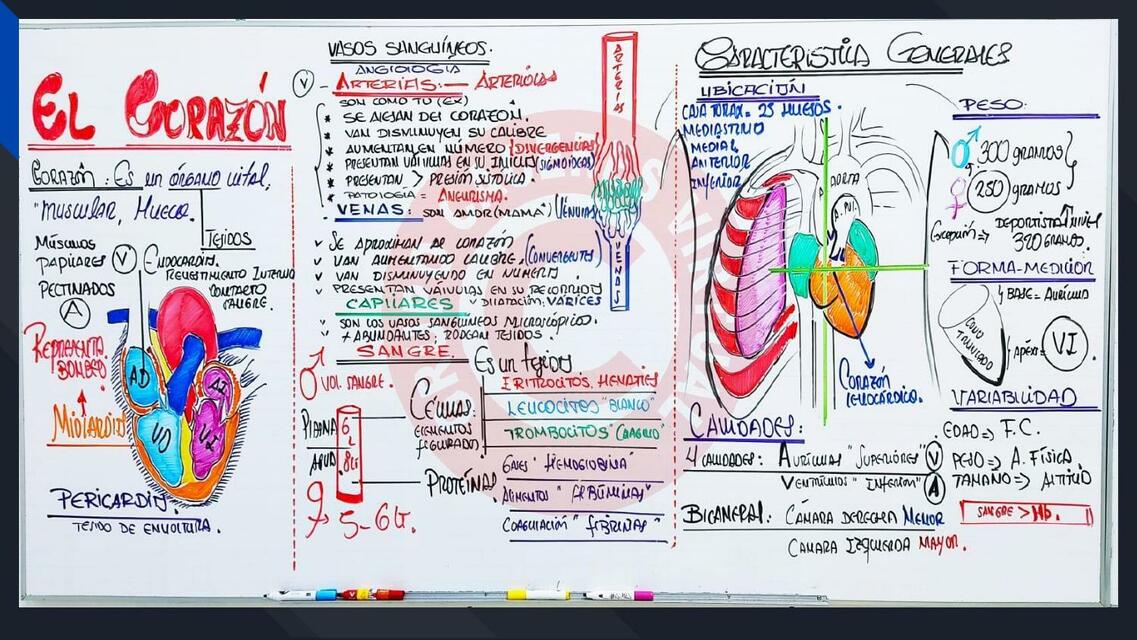 EL CORAZÓN
CORAZÓN: ES UN ÓRGANO VITAL,
"MUSCULAR, HUECO.
TEJIDOS
MÚSCULOS
PAPILARES V
PECTINADOS
A
ENDOCARDIO.
REVESTIMIENTO INTERNO
CONTACTO
SANGRE.
REPRESENTA.
BOMBEO
MIOCARDIO
AD
AI
VD
VI
PERICARDIO.
TEJIDO DE ENVOLTURA.
VASOS SANGUÍNEOS.
ANGIOLOGIA
V - ARTERIAS: — ARTERIOLAS
SON COMO TU (EX)
* SE ALEJAN DEL CORAZÓN.
* VAN DISMINUYEN SU CALIBRE
* AUMENTAN EN NÚMERO (DIVERGENCIAS)
* PRESENTAN VÁLVULAS EN SU INICIO (SIGMOIDEAS)
* PRESENTAN > PRESIÓN SISTÓLICA.
* PATOLOGIA = ANEURISMA.
VENAS: SON AMOR (MAMA) (VÉNULAS)
v SE APROXIMAN DE CORAZÓN
v VAN AUMENTANDO CALIBRE (CONVERGENTES)
v VAN DISMINUYENDO EN NÚMERO
v PRESENTAN VÁLVULAS EN SU RECORRIDO
CAPILARES v DILATACIÓN: VÁRICES
v SON LOS VASOS SANGUÍNEOS MICROSCÓPICO.
v + ABUNDANTES; RODEAN TEJIDOS.
ARTERIAS
VENAS
SANGRE. ES UN TEJIDO
♂ VOL. SANGRE.
PLASMA
AGUA
6
L
8L
♀ 5-6 LT.
CÉLULAS:
ELEMENTOS
FIGURADO
ERITROCITOS. HEMATIES
LEUCOCITOS "BLANCO"
TROMBOCITOS "COAGULO"
PROTEÍNAS
GASES "HEMOGLOBINA"
ALIMENTOS
COAGULACIÓN "FIBRINAS"
CARACTERISTICA GENERALES
UBICACIÓN
CAJA TORAX. 25 HUESOS.
MEDIASTINO
MEDIAL
ANTERIOR
INFERIOR
AORTA
CORAZÓN
LEVOCÁRDICO.
CAVIDADES:
4 CAVIDADES: AURÍCULAS "SUPERIORES" V
VENTRÍCULOS "INFERIOR" A
BICAMERAL: CÁMARA DERECHA MENOR
CÁMARA IZQUIERDA MAYOR.
PESO:
♂ 300 GRAMOS
♀ 250 GRAMOS
EXCEPCIÓN => DEPORTISTA ↑ NIVEL
GRAMOS.
FORMA-MEDICIÓN
BASE = AURÍCULA
CONO
TRUNCADO
APÉX = VI.
VARIABILIDAD
EDAD => F.C.
PESO => A. FÍSICA.
TAMAÑO => ALTITUD
SANGRE > Hb.